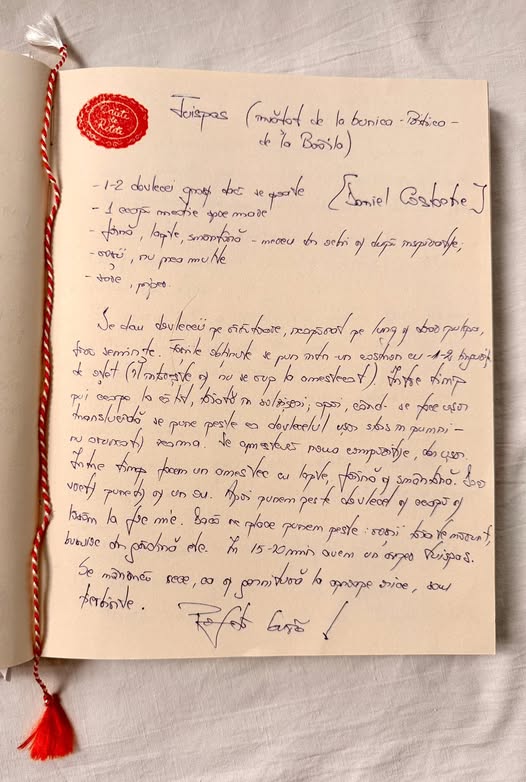 Tuispas (învățat de la bunica
de la Brăila)
- 1-2 dovlecei groși dacă se poate
[Daniel Costache]
- 1 ceapă medie spre mare
- făină, lapte, smântână - mereu din ochi și după inspirație;
- roșii, nu prea multe
- sare, piper.
Se dau dovleceii pe răzătoare, neapărat pe lung și doar pulpa,
fără semințe. Fâșiile obținute se pun într-un castron cu 1-2 lingurițe
de oțet (îl întărește și nu se rup la amestecat). Între timp
pui ceapa la călit, tăiată în solzișori, apoi, când se face ușor
translucidă se pune peste ea dovlecelul ușor stors în pumni -
nu aruncați zeama. Se amestecă noua compoziție, dar ușor.
Între timp facem un amestec cu lapte, făină și smântână. Dacă
vreți puneți și un ou. Apoi punem peste dovlecei și ceapă și
lăsăm la foc mic. Dacă ne place punem peste roșii tăiate mărunt,
busuioc din grădină etc. În 15-20 min avem un Tuispas.
Se mănâncă rece, ca și garnitură la aproape orice, sau
fierbinte.
Poftă bună!